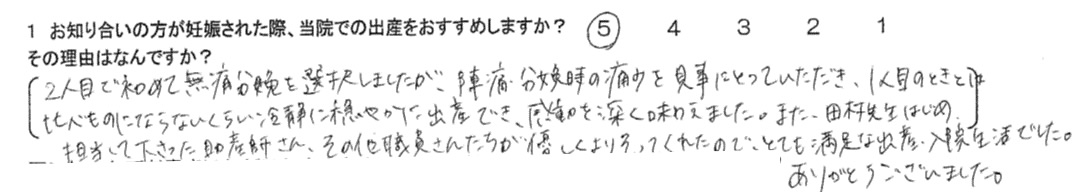 1 お知り合いの方が妊娠された際、当院での出産をおすすめしますか? 5 4 3 2 1
その理由はなんですか?
2人目で初めて無痛分娩を選択しましたが、陣痛・分娩時の痛みを見事にとっていただき、1人目のときとは
比べものにならないくらい冷静に穏やかに出産でき、感動を深く味わえました。また、田村先生はじめ、
担当して下さった助産師さん、その他職員さんたちが優しくよりそってくれたので、とても満足な出産・入院生活でした。
ありがとうございました。